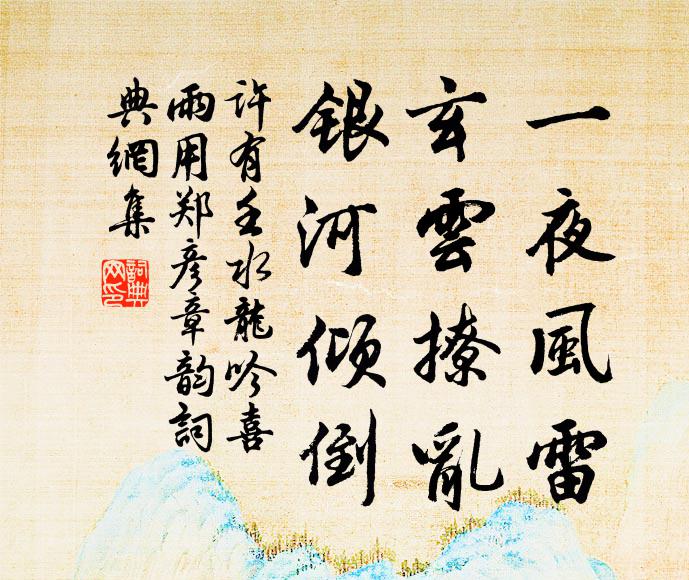 一夜風雷
玄雲撩亂
銀河傾倒
許有壬水龍吟喜
雨用郑彦章韵詞
典網集
詞典
网印